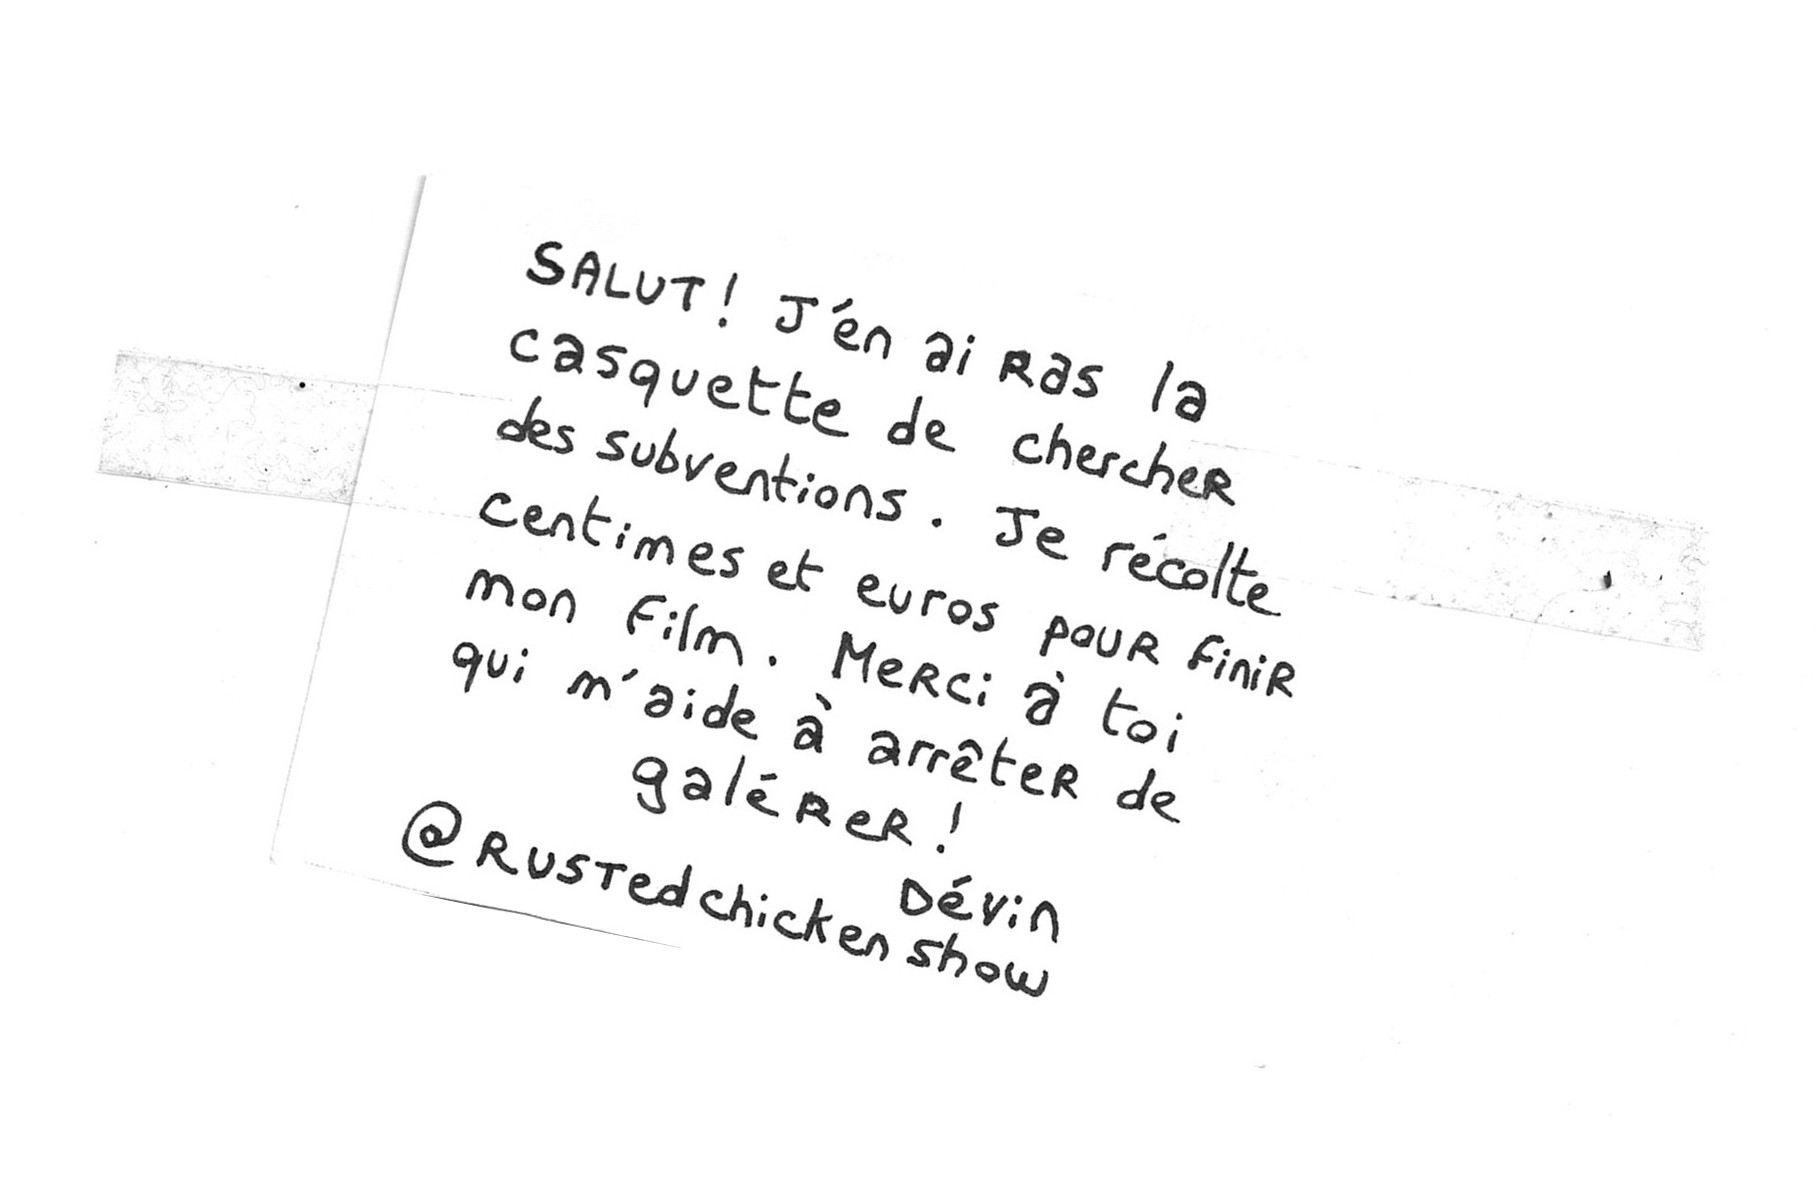 SALUT! J'en ai RAS la
casquette de chercheR
des subventions. Je récolte
centimes et euros pouR finiR
mon film. MeRci à toi
qui m'aide à arrêteR de
galéReR!
Dévin
@RUSTedchicken show